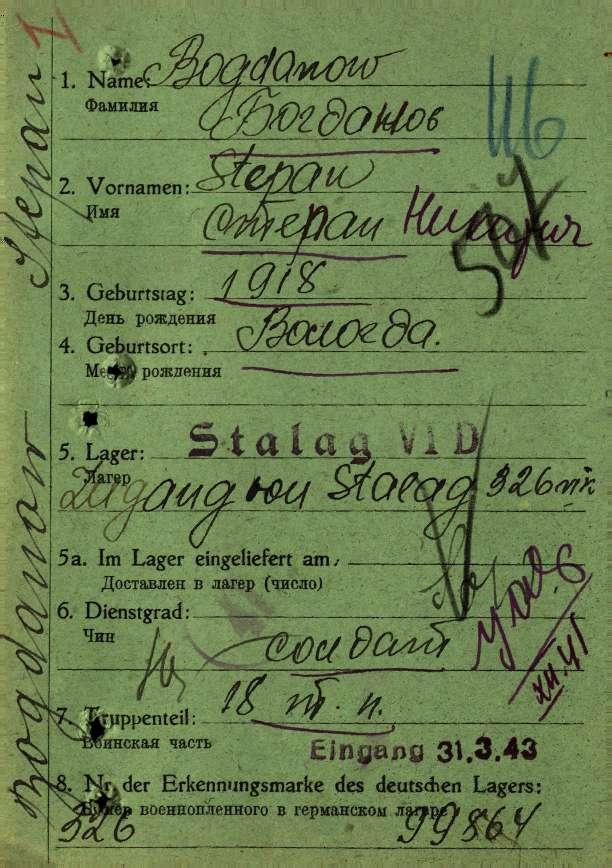 I
1. Name: Bogdanow
Фамилия
Богданов
2. Vornamen: Stepan
Имя
Степан
504
3. Geburtstag: 1918
День рождения
4. Geburtsort: Вологда.
Место рождения
5. Lager: Stalag VI D
Лагер
Zugang von Stalag 326 VI K
5a. Im Lager eingeliefert am:
Доставлен в лагер (число)
6. Dienstgrad:
Чин
солдат
XII.41
7. Truppenteil: 18 т. п.
Воинская часть
Eingang 31.3.43
8. Nr. der Erkennungsmarke des deutschen Lagers:
Номер военнопленного в германском лагере
326 99864
Bogdanow Stepan